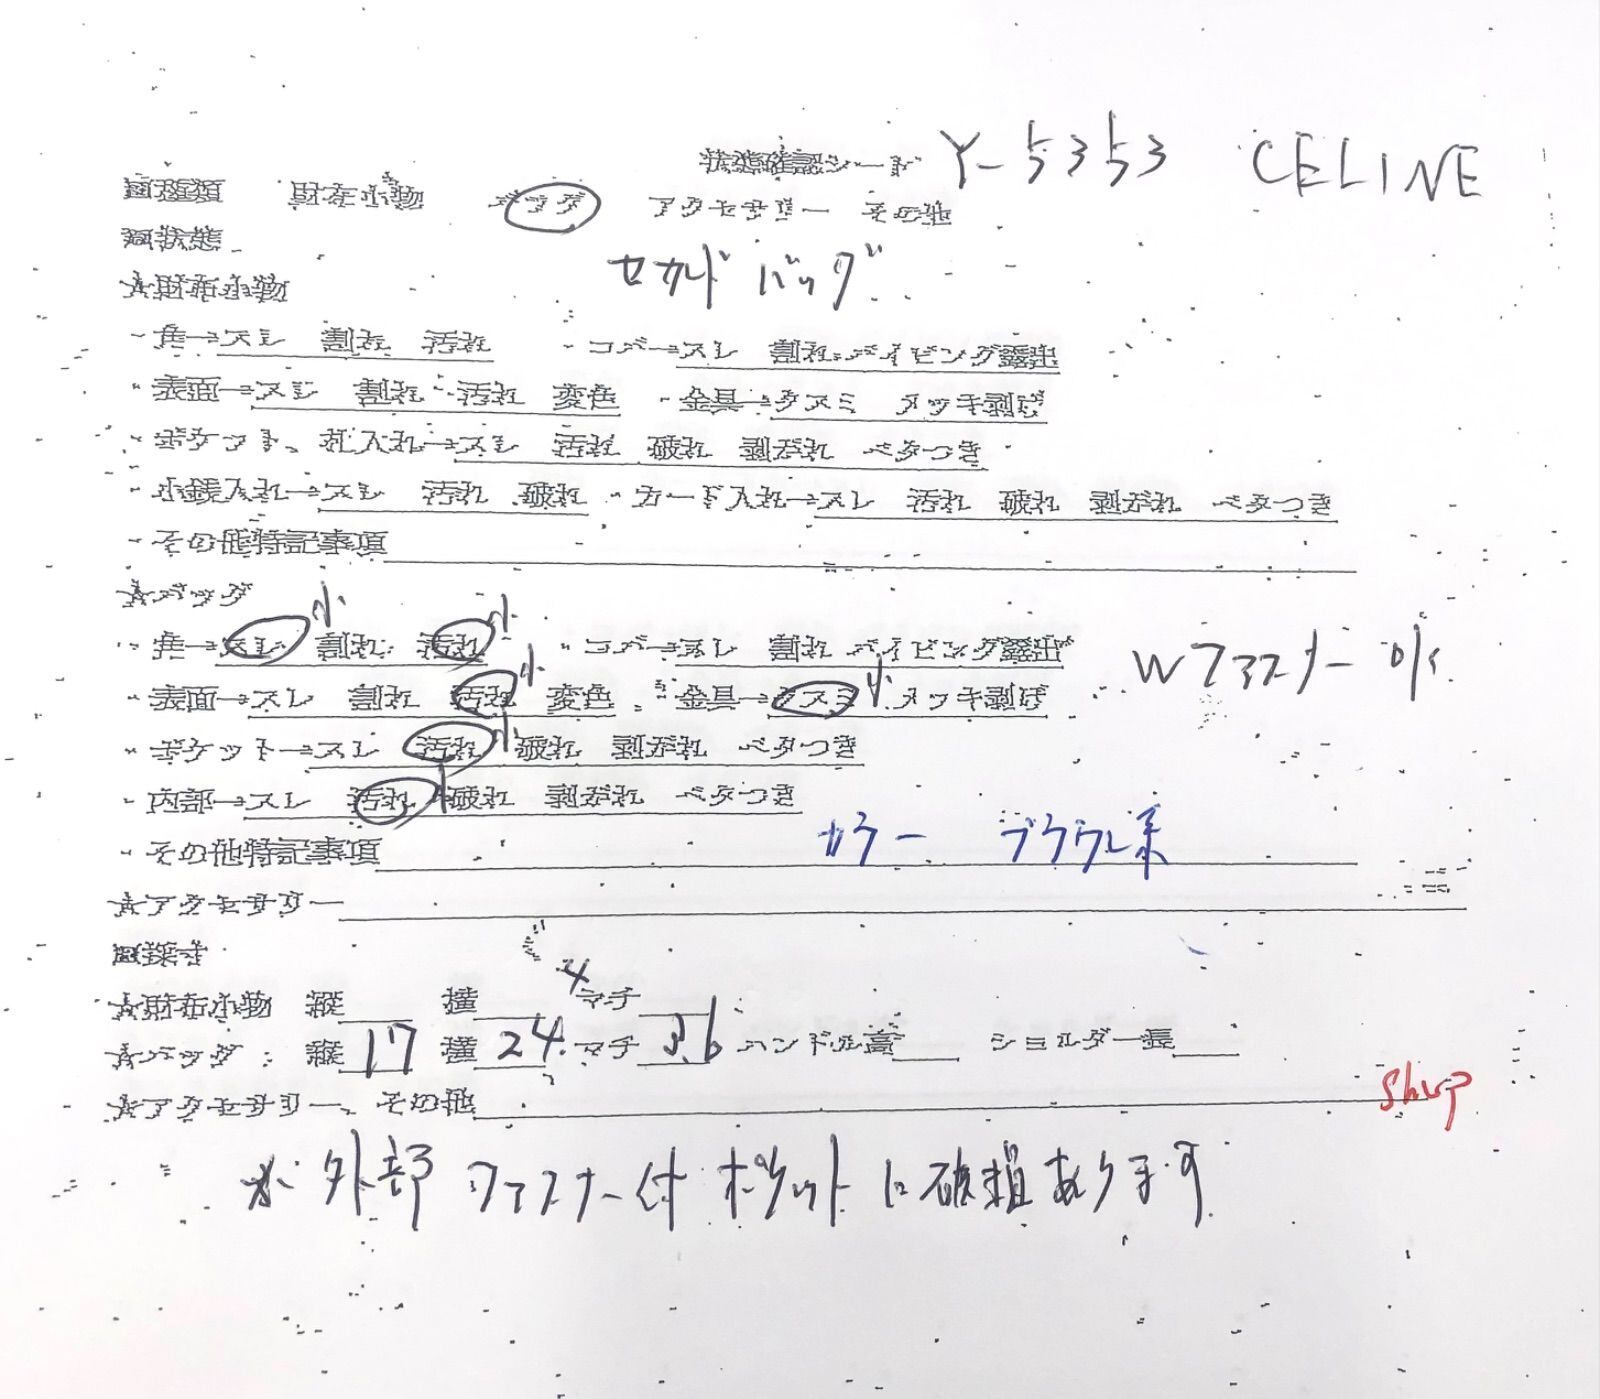 状態確認シート Y-5353 CELINE
■種類 財布小物 バッグ アクセサリー その他
■状態
セカンドバッグ
★財布小物
・角→スレ 割れ 汚れ ・コバ→スレ 割れ パイピング露出
・表面→スレ 割れ 汚れ 変色 ・金具→クスミ メッキ剥げ
・ポケット、札入れ→スレ 汚れ 破れ 剥がれ ベタつき
・小銭入れ→スレ 汚れ 破れ ・カード入れ→スレ 汚れ 破れ 剥がれ ベタつき
・その他特記事項
★バッグ
・角→スレ 小 割れ 汚れ 小 ・コバ→スレ 割れ パイピング露出
・表面→スレ 割れ 汚れ 小 変色 ・金具→クスミ 小 メッキ剥げ
Wファスナー
・ポケット→スレ 汚れ 小 破れ 剥がれ ベタつき
・内部→スレ 汚れ 小 破れ 剥がれ ベタつき
・その他特記事項 カラー ブラウン系
★アクセサリー
■採寸
★財布小物 縦 横 マチ
4
★バッグ:縦 17 横 24 マチ ハンドル高 ショルダー長
★アクセサリー、その他
※外部ファスナー付ポケットに破損あります